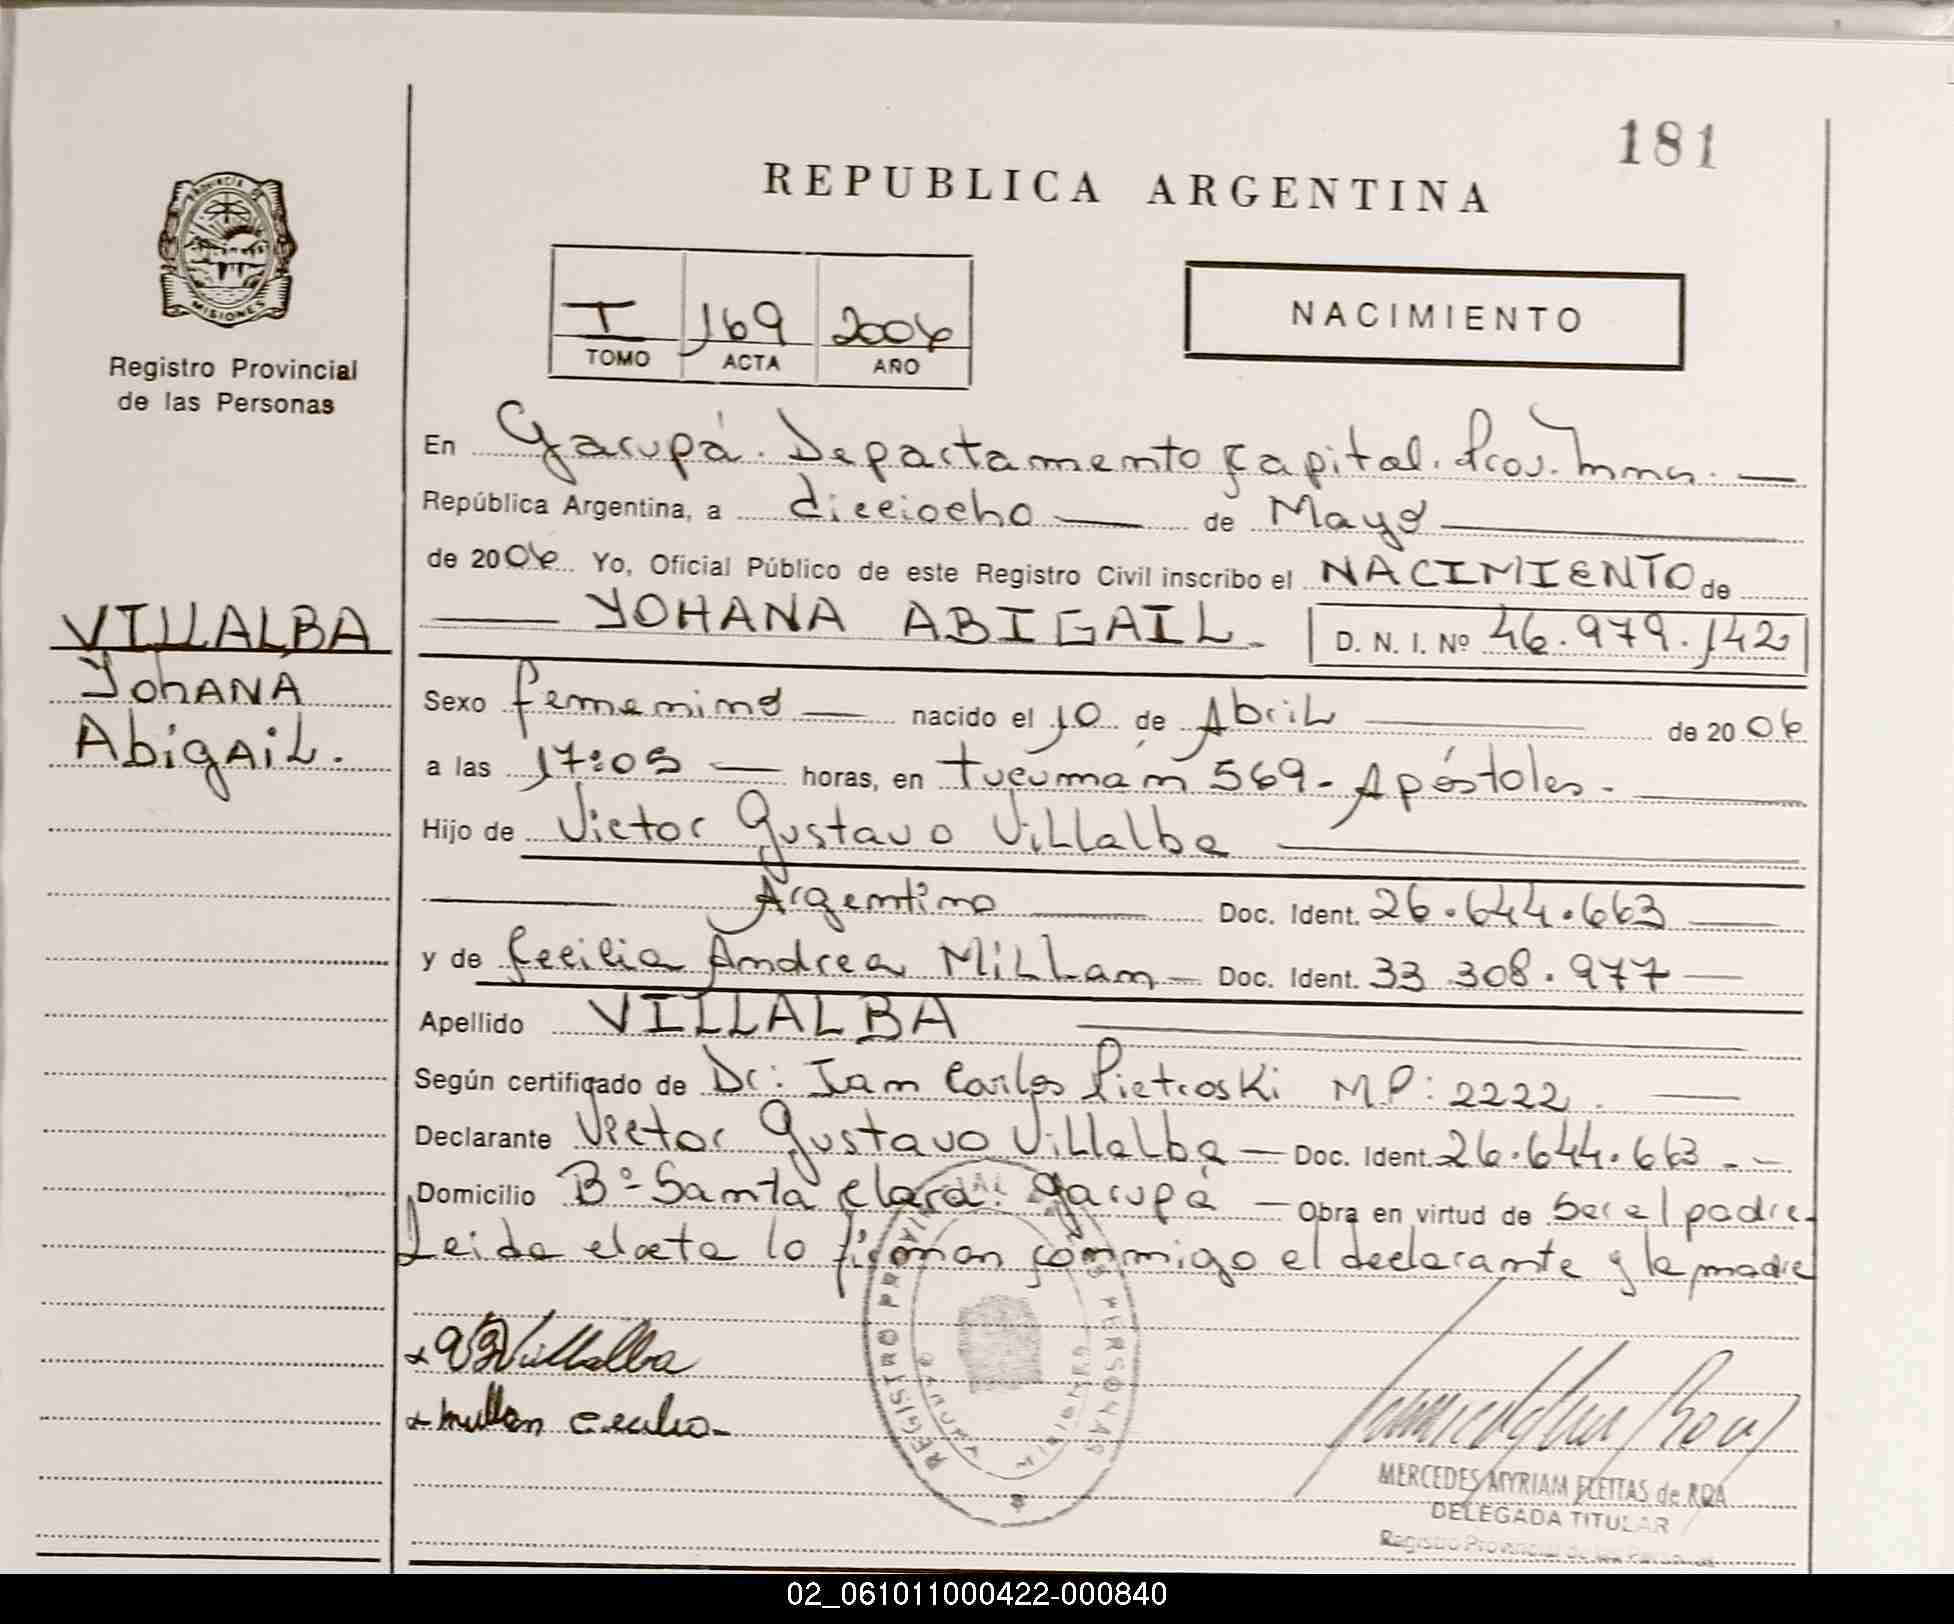 181
REPUBLICA ARGENTINA
PROVINCIA DE
MISIONES
Registro Provincial
de las Personas
I 169 2006
TOMO ACTA AÑO
NACIMIENTO
En Garupá. Departamento Capital. Prov. Mnes.
República Argentina, a dieciocho de Mayo
de 2006 Yo, Oficial Público de este Registro Civil inscribo el NACIMIENTO de
YOHANA ABIGAIL. D. N. I. Nº 46.979.142
VILLALBA
YohANA
AbigAiL.
Sexo femenino nacido el 10 de Abril de 2006
a las 17:05 horas, en tucumán 569 - Apóstoles.
Hijo de Victor Gustavo Villalba
Argentino Doc. Ident. 26.644.663
y de Cecilia Andrea Millan Doc. Ident. 33.308.977
Apellido VILLALBA
Según certificado de Dr: Ian Carlos Pietroski MP: 2222.
Declarante Victor Gustavo Villalba Doc. Ident. 26.644.663.-
Domicilio Bº Santa Clara. Garupá Obra en virtud de ser el padre.
Leida el acta lo firman conmigo el declarante y la madre
Villalba
millan Cecilia
REGISTRO PROVINCIAL DE LAS PERSONAS
GARUPA
MISIONES
MERCEDES MYRIAM FLEITAS de ROA
DELEGADA TITULAR
Registro Provincial de las Personas
02_061011000422-000840